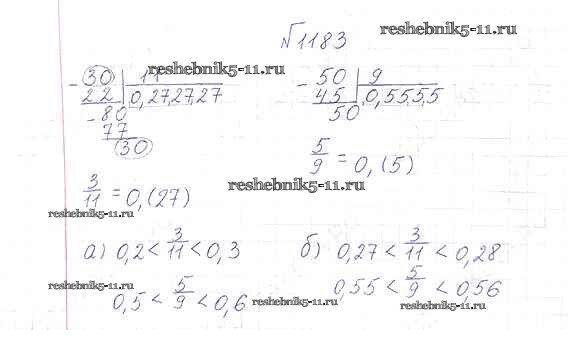 reshebnik5-11.ru
№1183
reshebnik5-11.ru
- 30 | 11
22 | 0,27,27,27
- 80
77
30
- 50 | 9
45 | 0,55,5,5
50
3/11 = 0,(27)
5/9 = 0,(5)
reshebnik5-11.ru
reshebnik5-11.ru
а) 0,2 < 3/11 < 0,3
0,5 < 5/9 < 0,6
б) 0,27 < 3/11 < 0,28
0,55 < 5/9 < 0,56
reshebnik5-11.ru
reshebnik5-11.ru
reshebnik5-11.ru